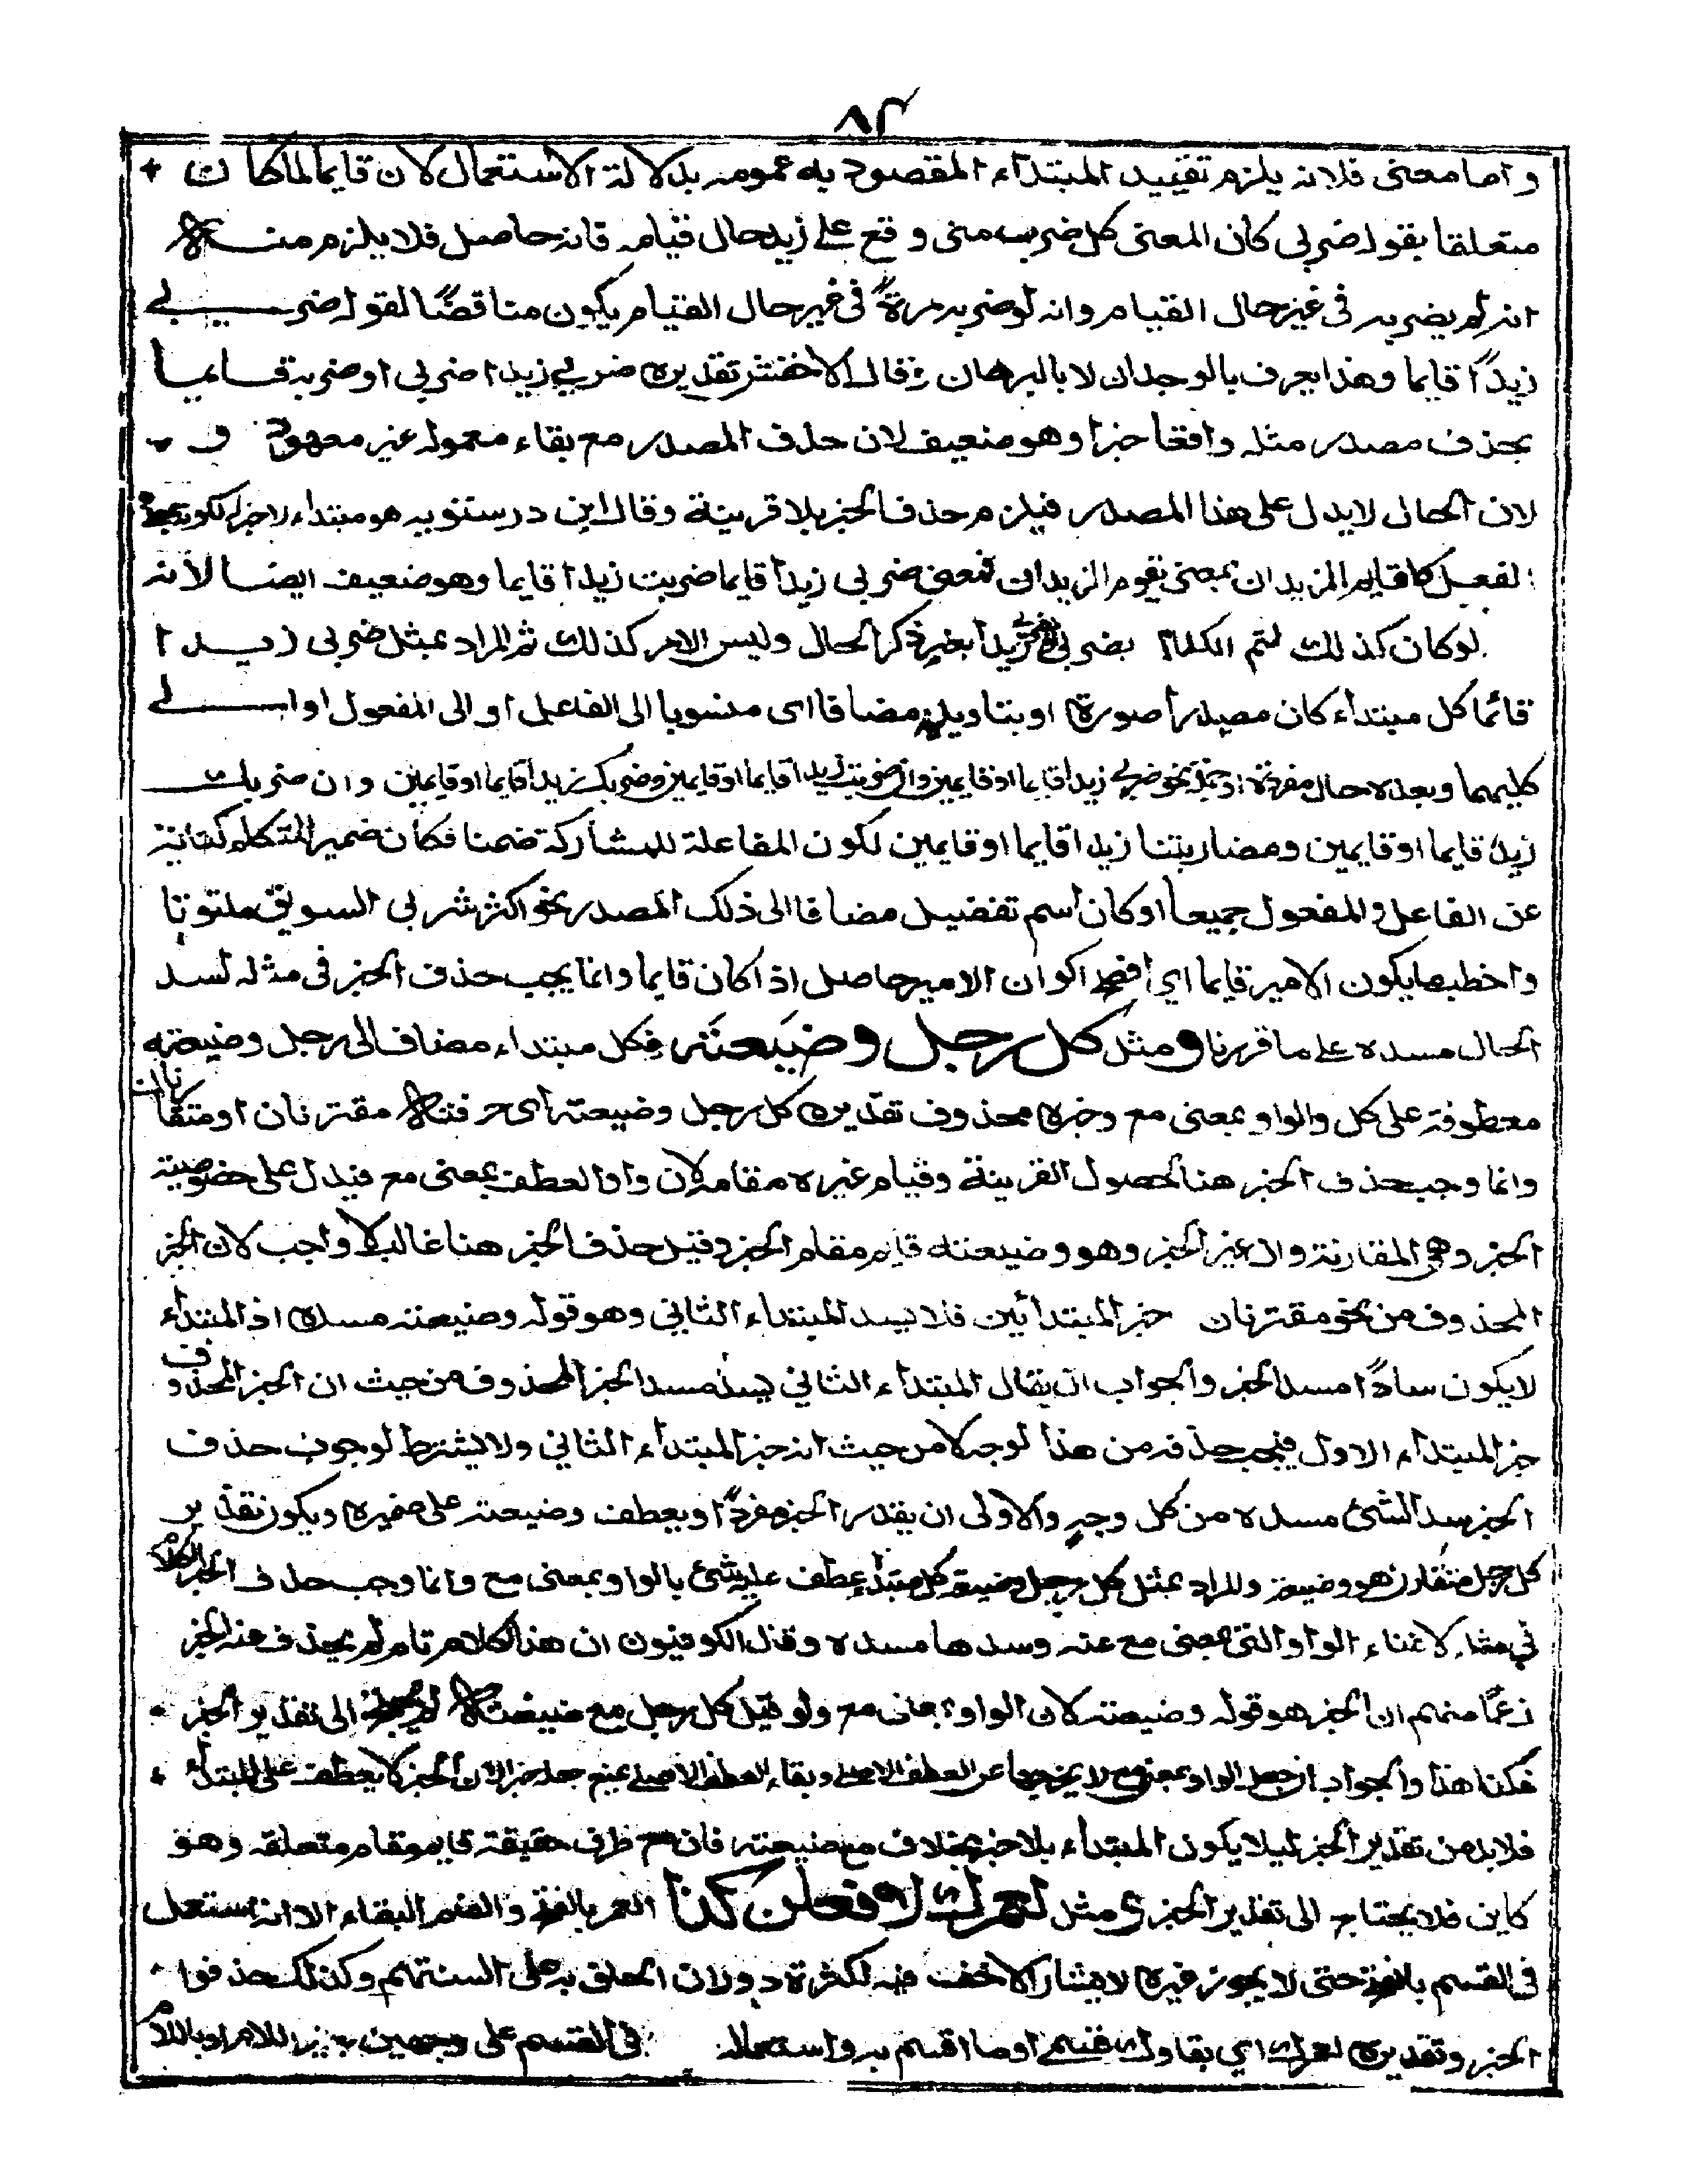 ٨٢
واما معنى فلانه يلزم تقييد المبتداء المقصود به عمومه بدلالة الاستعمال لان قايما لما كان
متعلقا بقوله ضربى كان المعنى كل ضرب منى وقع على زيد حال قيامه فانه حاصل فلا يلزم منه
انه لم يضربه فى غير حال القيام وانه لو ضربه مرةً فى غير حال القيام يكون مناقضًا لقوله ضربي
زيدًا قايما وهذا يعرف بالوجدان لا بالبرهان وقال الاخفش تقديره ضربي زيدا ضربى او ضربه قايما
بحذف مصدر مثله واقعا خبرا وهو ضعيف لان حذف المصدر مع بقاء معموله غير معهود و
لان الحال لا يدل على هذا المصدر فيلزم حذف الخبر بلا قرينة وقال ابن درستويه هو مبتداء لا خبر له لكونه بمعنى
الفعل كما قايم الزيدان بمعنى يقوم الزيدان فمعنى ضربى زيدا قايما ضربت زيدا قايما وهو ضعيف ايضا لأنه
لو كان كذلك لتم الكلام بضربى زيدا بغير ذكر الحال وليس الامر كذلك ثم المراد بمثل ضربى زيدا
قائما كل مبتداء كان مصدرا صورة او بتاويله مضافا اى منسوبا الى الفاعل او الى المفعول او الي
كليهما وبعده حال مفردة او جملة نحو ضربي زيدا قايما او قايمين وان ضربت زيدا قايما او قايمين وضربك زيدا قايما او قايمين وان ضربك
زيدا قايما او قايمين ومضاربتنا زيدا قايما او قايمين لكون المفاعلة للمشاركة ضمنا فكان ضمير المتكلم كناية
عن الفاعل والمفعول جميعا او كان اسم تفضيل مضافا الى ذلك المصدر نحو اكثر شربى السويق ملتوتا
واخطب ما يكون الامير قايما اي اكوان الامير حاصل اذا كان قايما وانما يجب حذف الخبر فى مثله لسد
الحال مسده على ما قررنا ومثل كل رجل وضيعته فكل مبتداء مضاف الى رجل وضيعته
معطوفة على كل والواو بمعنى مع وخبره محذوف تقديره كل رجل وضيعته اى حرفته مقترنان او متقارنان
وانما وجب حذف الخبر هنا لحصول القرينة وقيام غيره مقامه لان واو العطف بمعنى مع فيدل على خصوصية
الخبر وهى المقارنة وان غير الخبر وهو وضيعته قايم مقام الخبر وقيل حذف الخبر هنا غالب لا واجب لان الخبر
المحذوف من نحو مقترنان خبر المبتدائين فلا يسد المبتداء الثاني وهو قوله وضيعته مسده اذ المبتداء
لا يكون سادًا مسد الخبر والجواب ان يقال المبتداء الثاني يسد مسد الخبر المحذوف من حيث ان الخبر المحذوف
خبر المبتداء الاول فيجب حذفه من هذا لوجه لا من حيث انه خبر المبتداء الثاني ولا يشترط لوجوب حذف
الخبر سد الشئ مسده من كل وجهٍ والاولى ان يقدر الخبر مفردًا او يعطف وضيعته على ضميره ويكون تقدير
كل رجل متقارن هو وضيعته والمراد بمثل كل رجل وضيعته كل مبتداء عطف عليه شئ بالواو بمعنى مع وانما وجب حذف الخبر الكلام
في مثله لاغناء الواو التى بمعنى مع عنه وسدها مسده وقال الكوفيون ان هذا الكلام تام لم يحذف عنه الخبر
زعمًا منهم ان الخبر هو قوله وضيعته لان الواو بمعنى مع ولو قيل كل رجل مع ضيعته الى تقدير الخبر
فكذا هذا والجواب ان جعل الواو بمعنى مع لا يخرجها عن العطف الاصلى وبقاء العطف الاصلي يمنع جعله خبرا لان الخبر لا يعطف على المبتداء
فلا بد من تقدير الخبر ليلا يكون المبتداء بلا خبر بخلاف مع ضيعته فان مع ظرف حقيقة قايم مقام متعلقه وهو
كاين فلا يحتاج الى تقدير الخبر ومثل لعمرك لافعلن كذا العمر بالفتح والضم البقاء الا انه استعمل
فى القسم بالفتح حتى لا يجوز غيره لايثار الاخف فيه لكثرة دوران الحلق به على السنتهم وكذلك حذفوا
الخبر وتقديره لعمرك اي بقاوك قسمي او ما اقسم به واستعماله فى القسم على وجهين اللام او باللام